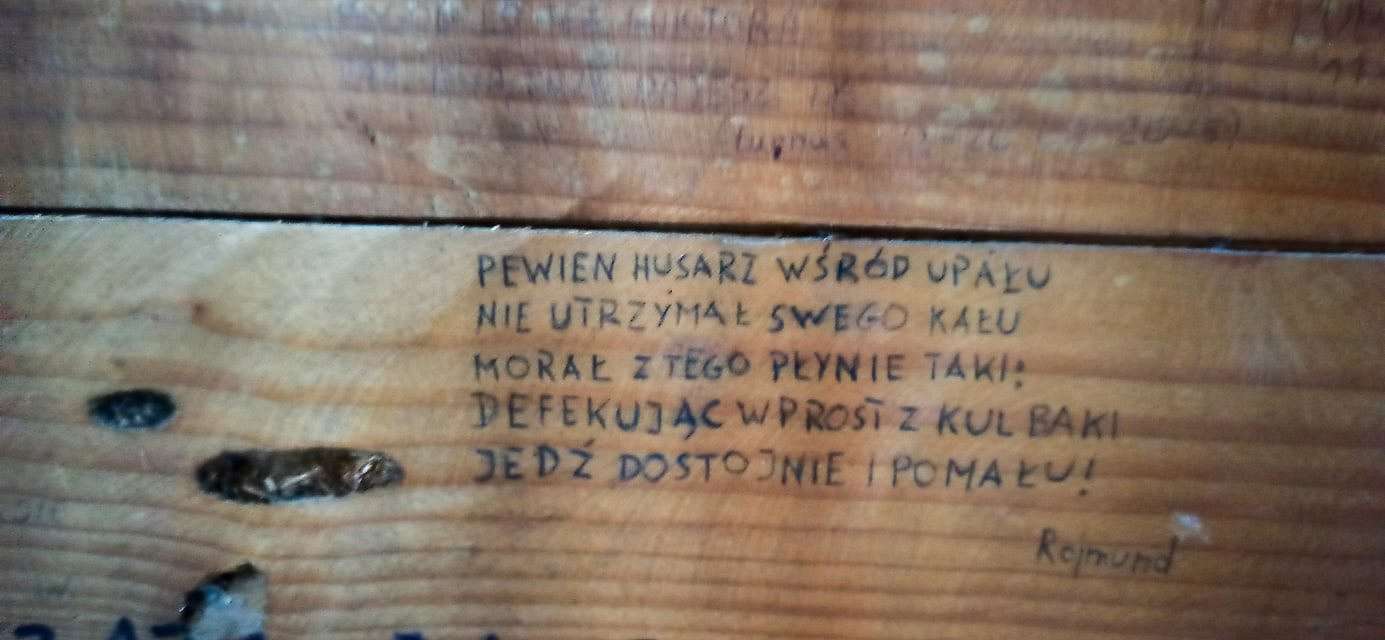 PEWIEN HUSARZ WŚRÓD UPAŁU
NIE UTRZYMAŁ SWEGO KAŁU
MORAŁ Z TEGO PŁYNIE TAKI:
DEFEKUJĄC WPROST Z KULBAKI
JEDŹ DOSTOJNIE I POMAŁU!
Rajmund